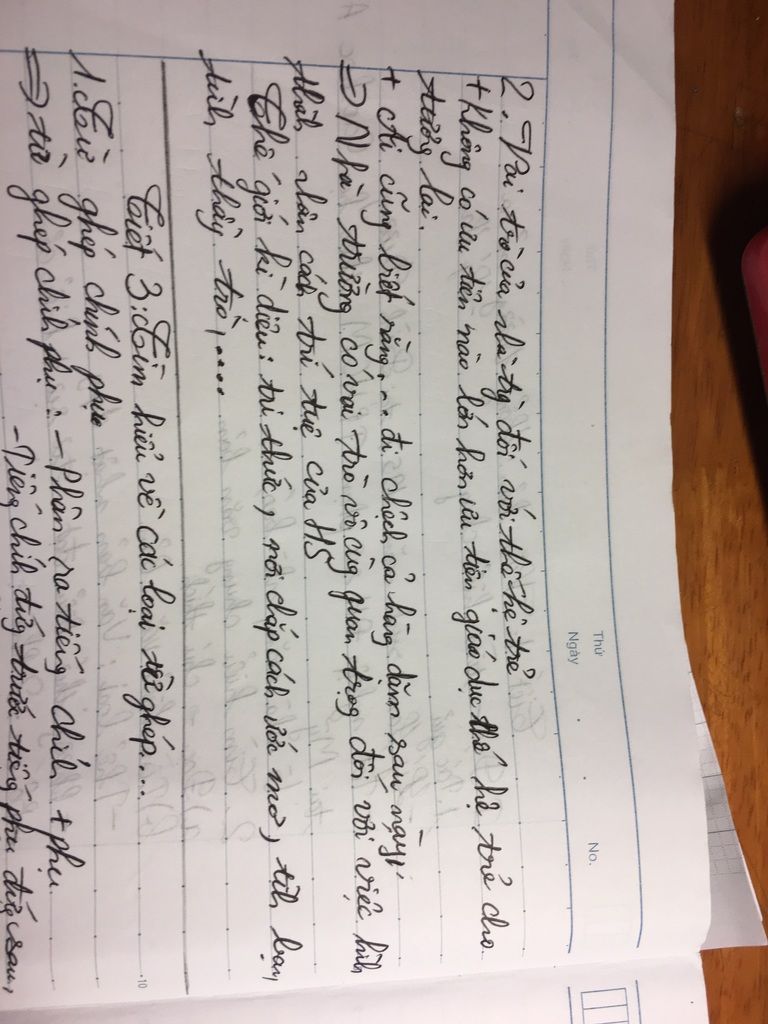 Thứ
Ngày
No.
2. Vai trò của nhà trg đối với thế hệ trẻ
+ Không có ưu tiên nào lớn hơn ưu tiên giáo dục thế hệ trẻ cho
tương lai.
+ Ai cũng biết rằng... đi chệch cả hàng dặm sau này"
=> Nhà trường có vai trò vô cùg quan trọg đối với việc hình
thành nhân cách trí tuệ của HS
Thế giới kì diệu: tri thức, nơi chắp cách ước mơ, tình bạn,
tình thầy trò,....
Tiết 3: Tìm hiểu về các loại từ ghép...
1. Từ ghép chính phụ
=> từ ghép chính phụ: - Phân ra tiếng chính + phụ
- Tiếng chính đứg trước tiếng phụ đứg sau,
10